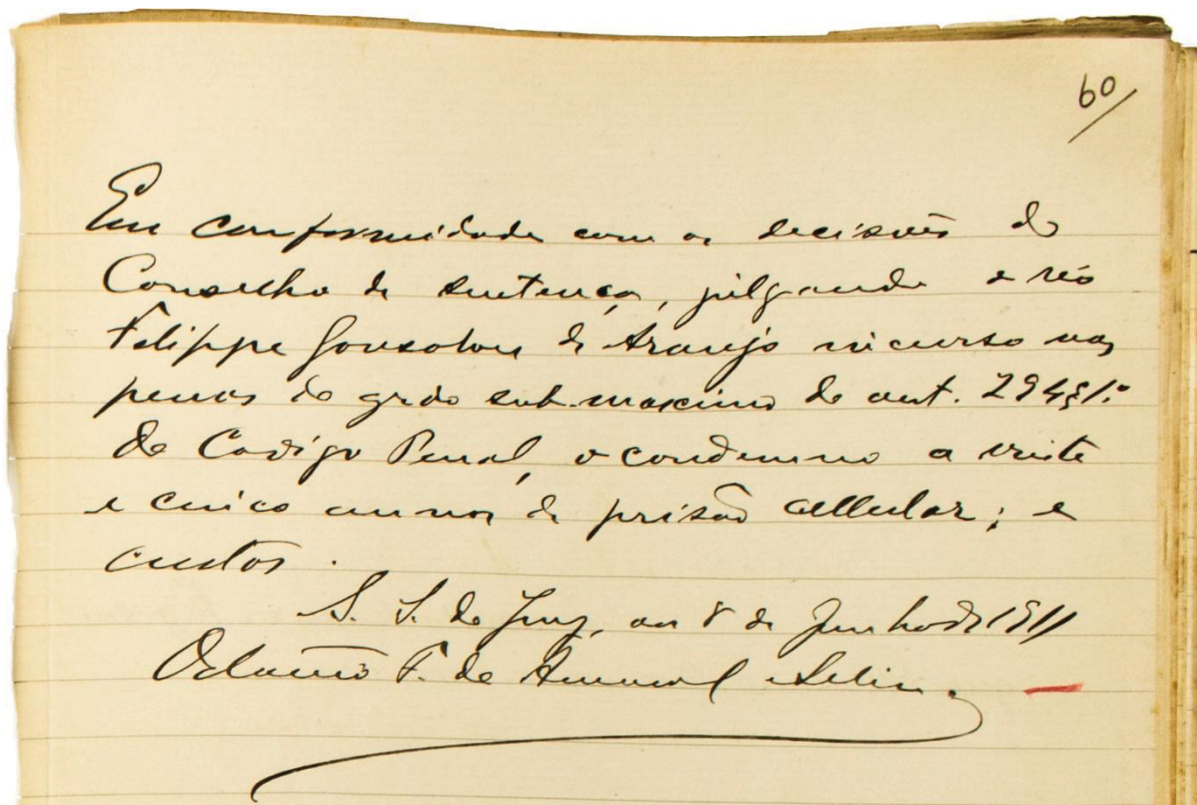 60
Em conformidade com as decisões do
Conselho de sentença, julgando o réo
Felippe Gonsalves de Araujo incurso nas
penas do gráo sub-maximo do art. 294 § 1º
do Codigo Penal, o condemno a vinte
e cinco annos de prisão cellular; e
custas.
S. S. do Jury, aos 8 de Junho de 1911
F. de Amaral